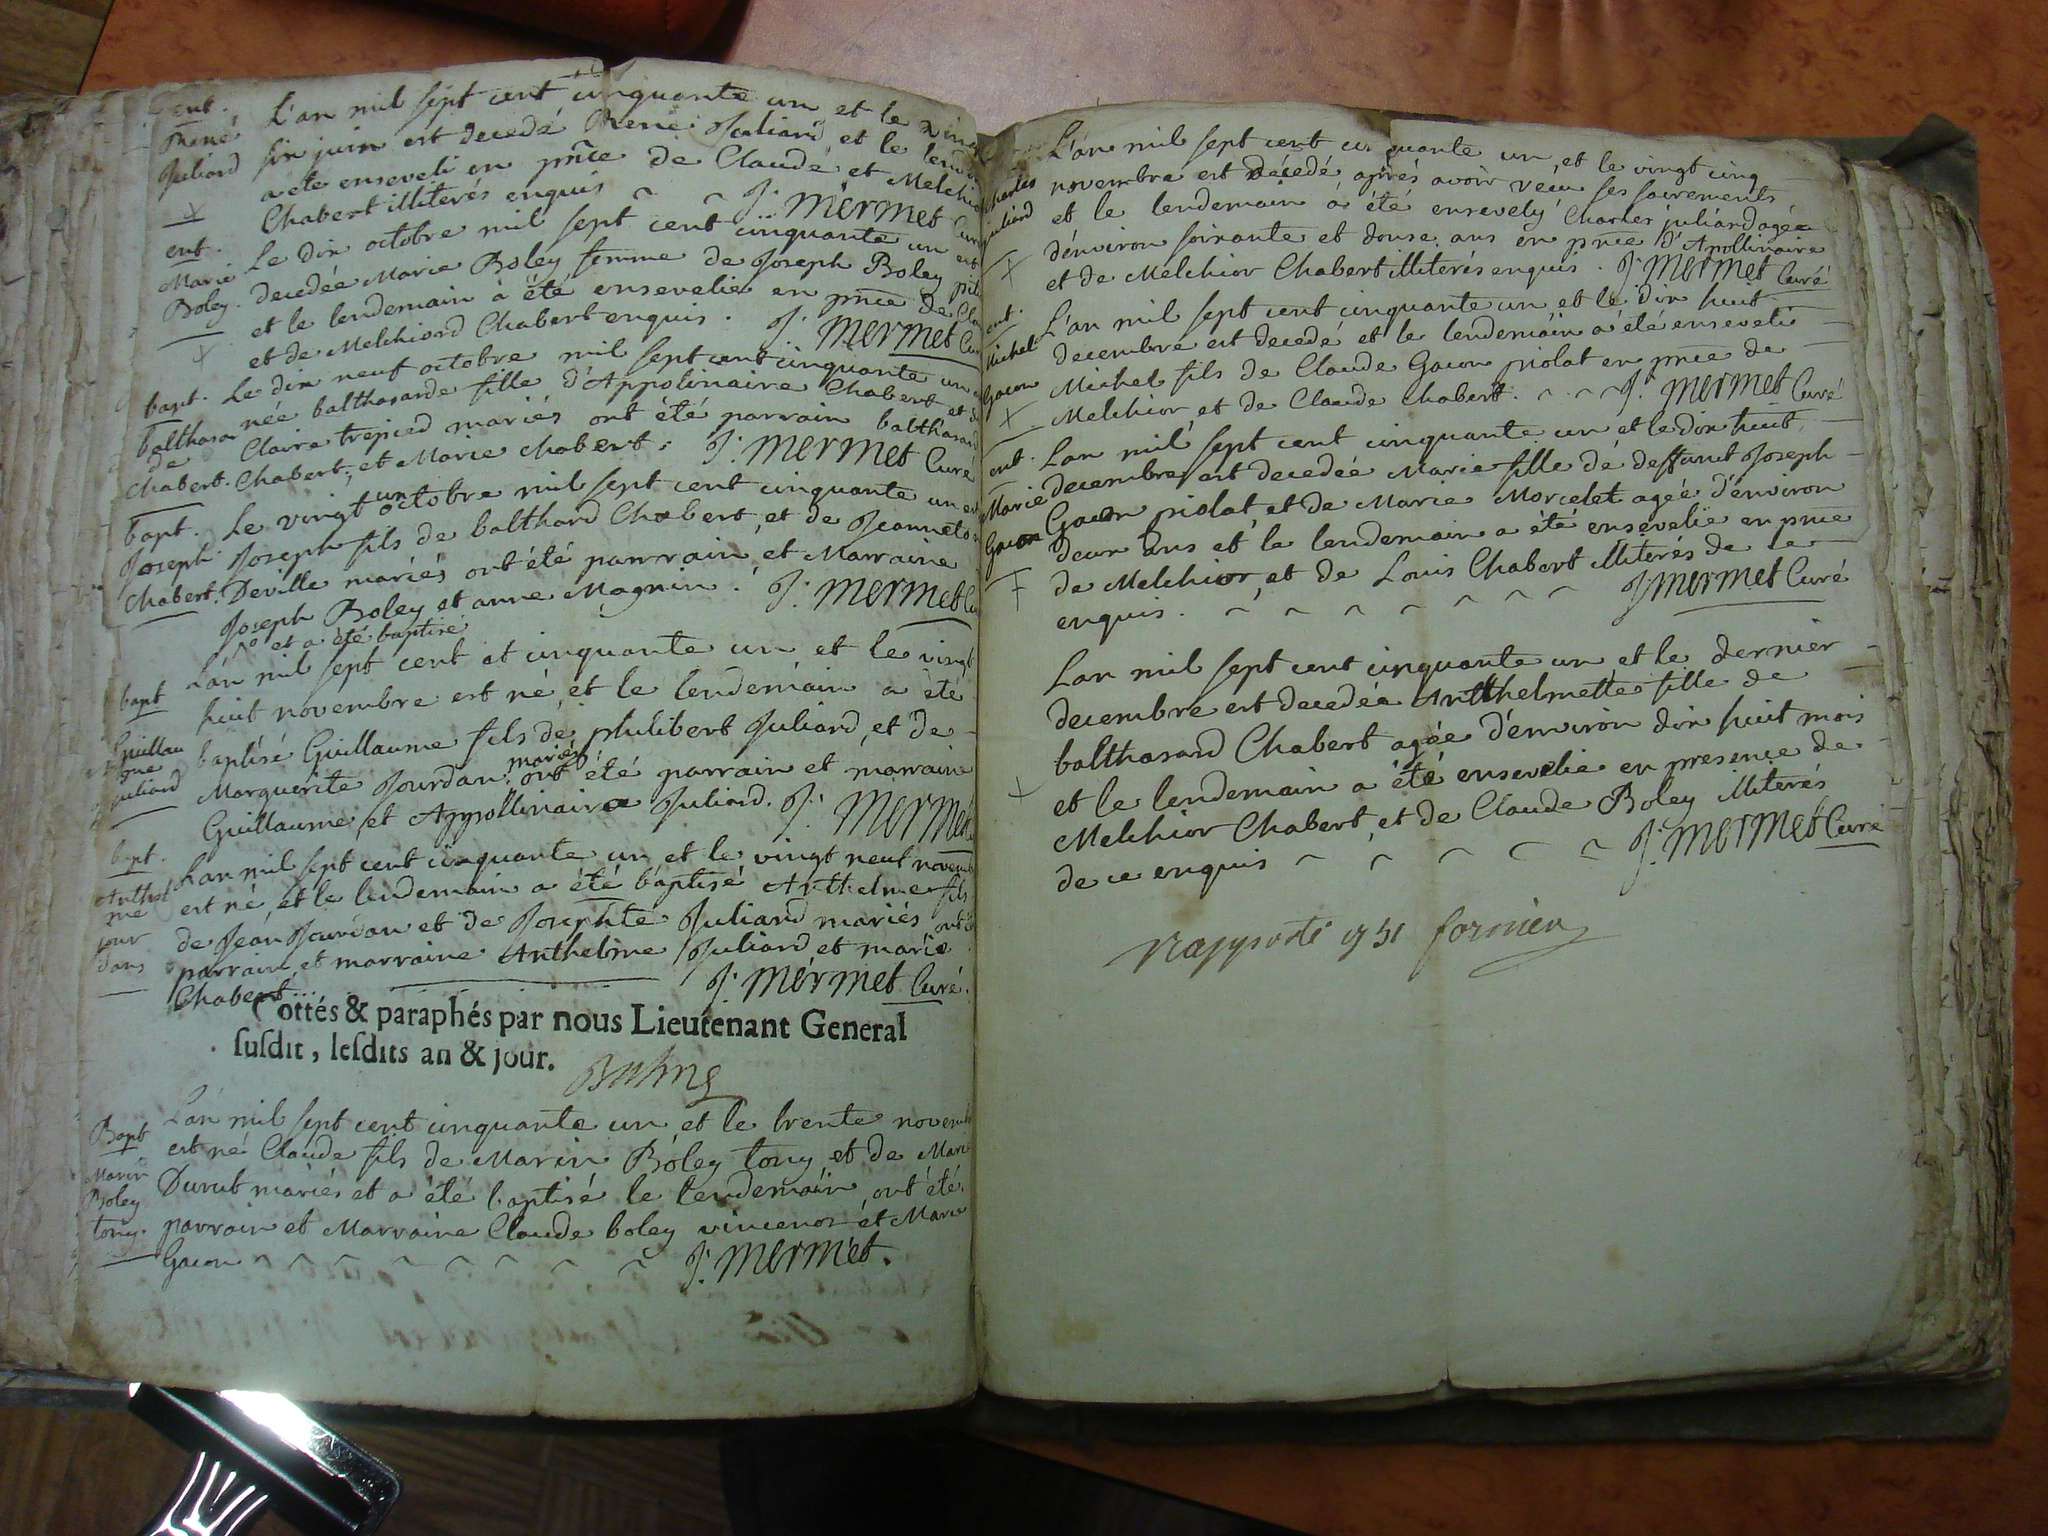 ent.
René
Juliard
L'an mil sept cent cinquante un et le
six juin est decedé René Juliard et le
a ete enseveli en pñce de Claude et Melchior
Chabert illiterés enquis J: Mermet Curé
ent.
Marie
Boley.
Le dix octobre mil sept cent cinquante un est
decedée Marie Boley femme de Joseph Boley
et le lendemain à été ensevelie en pñce de
et de Melchiord Chabert enquis. J: Mermet
bapt.
balthasar
de
Chabert.
Le dix neuf octobre mil sept cent cinquante un
née balthasarde fille d'Appolinaire Chabert et de
Claire trepied mariés ont été parrain balthasard
Chabert, et Marie chabert: J: Mermet Curé
bapt.
Joseph
Chabert.
Le vingt un octobre mil sept cent cinquante un est
Joseph fils de balthard Chabert et de Jeanne
Deville mariés ont été parrain et Marraine
Joseph Boley et anne Magnin. J: Mermet
né et a été baptise
bapt
Guillau
me
Juliard
L'an mil sept cent et cinquante un et le vingt
huit novembre est né, et le lendemain a été
baptisé Guillaume fils de philibert Juliard, et de
Marguerite Jourdan mariés ont été parrain et marraine
Guillaume et Appollinaire Juliard. J: Mermet
bapt.
Anthel
me
jour
dans
L'an mil sept cent cinquante un et le vingt neuf novemb
est né, et le lendemain a été baptisé Anthelme fils
de Jean Jourdan et de Josephte Juliard mariés ont
parrain et marraine Anthelme Juliard et marie
Chabert... J: Mermet Curé.
Cottés & paraphés par nous Lieutenant General
susdit, lesdits an & jour.
Bapt
Marin
Boley
tony.
L'an mil sept cent cinquante un et le trente novemb
est né Claude fils de Marin Boley tony et de Marie
Durut mariés et a été baptisé le lendemain, ont été
parrain et Marraine Claude boley vincenot et Marie
Gacon J: Mermet.
Charles
Juliard
L'an mil sept cent cinquante un, et le vingt cinq
novembre est décedé après avoir reçu ses sacrements
et le lendemain a été ensevely Charles juliard agée
d'environ soixante et douse ans en pñce d'Apollinaire
et de Melchior Chabert illiterés enquis. J: Mermet Curé
ent.
Michel
Gacon
L'an mil sept cent cinquante un et le dix huit
decembre est decedé et le lendemain a été enseveli
Michel fils de Claude Gacon piolat en pñce de
Melchior et de Claude Chabert. J: Mermet Curé
ent.
Marie
Gacon
L'an mil sept cent cinquante un et le dix huit
decembre est decedée Marie fille de deffunt Joseph
Gacon piolat et de Marie Morcelet agée d'environ
deux ans et le lendemain a été ensevelie en pñce
de Melchior, et de Louis Chabert illiterés de ce
enquis. J: Mermet Curé
L'an mil sept cent cinquante un et le dernier
decembre est decedée Anthelmette fille de
balthasard Chabert agée d'environ dix huit mois
et le lendemain a été ensevelie en presence de
Melchior Chabert, et de Claude Boley illiterés
de ce enquis J: Mermet Curé